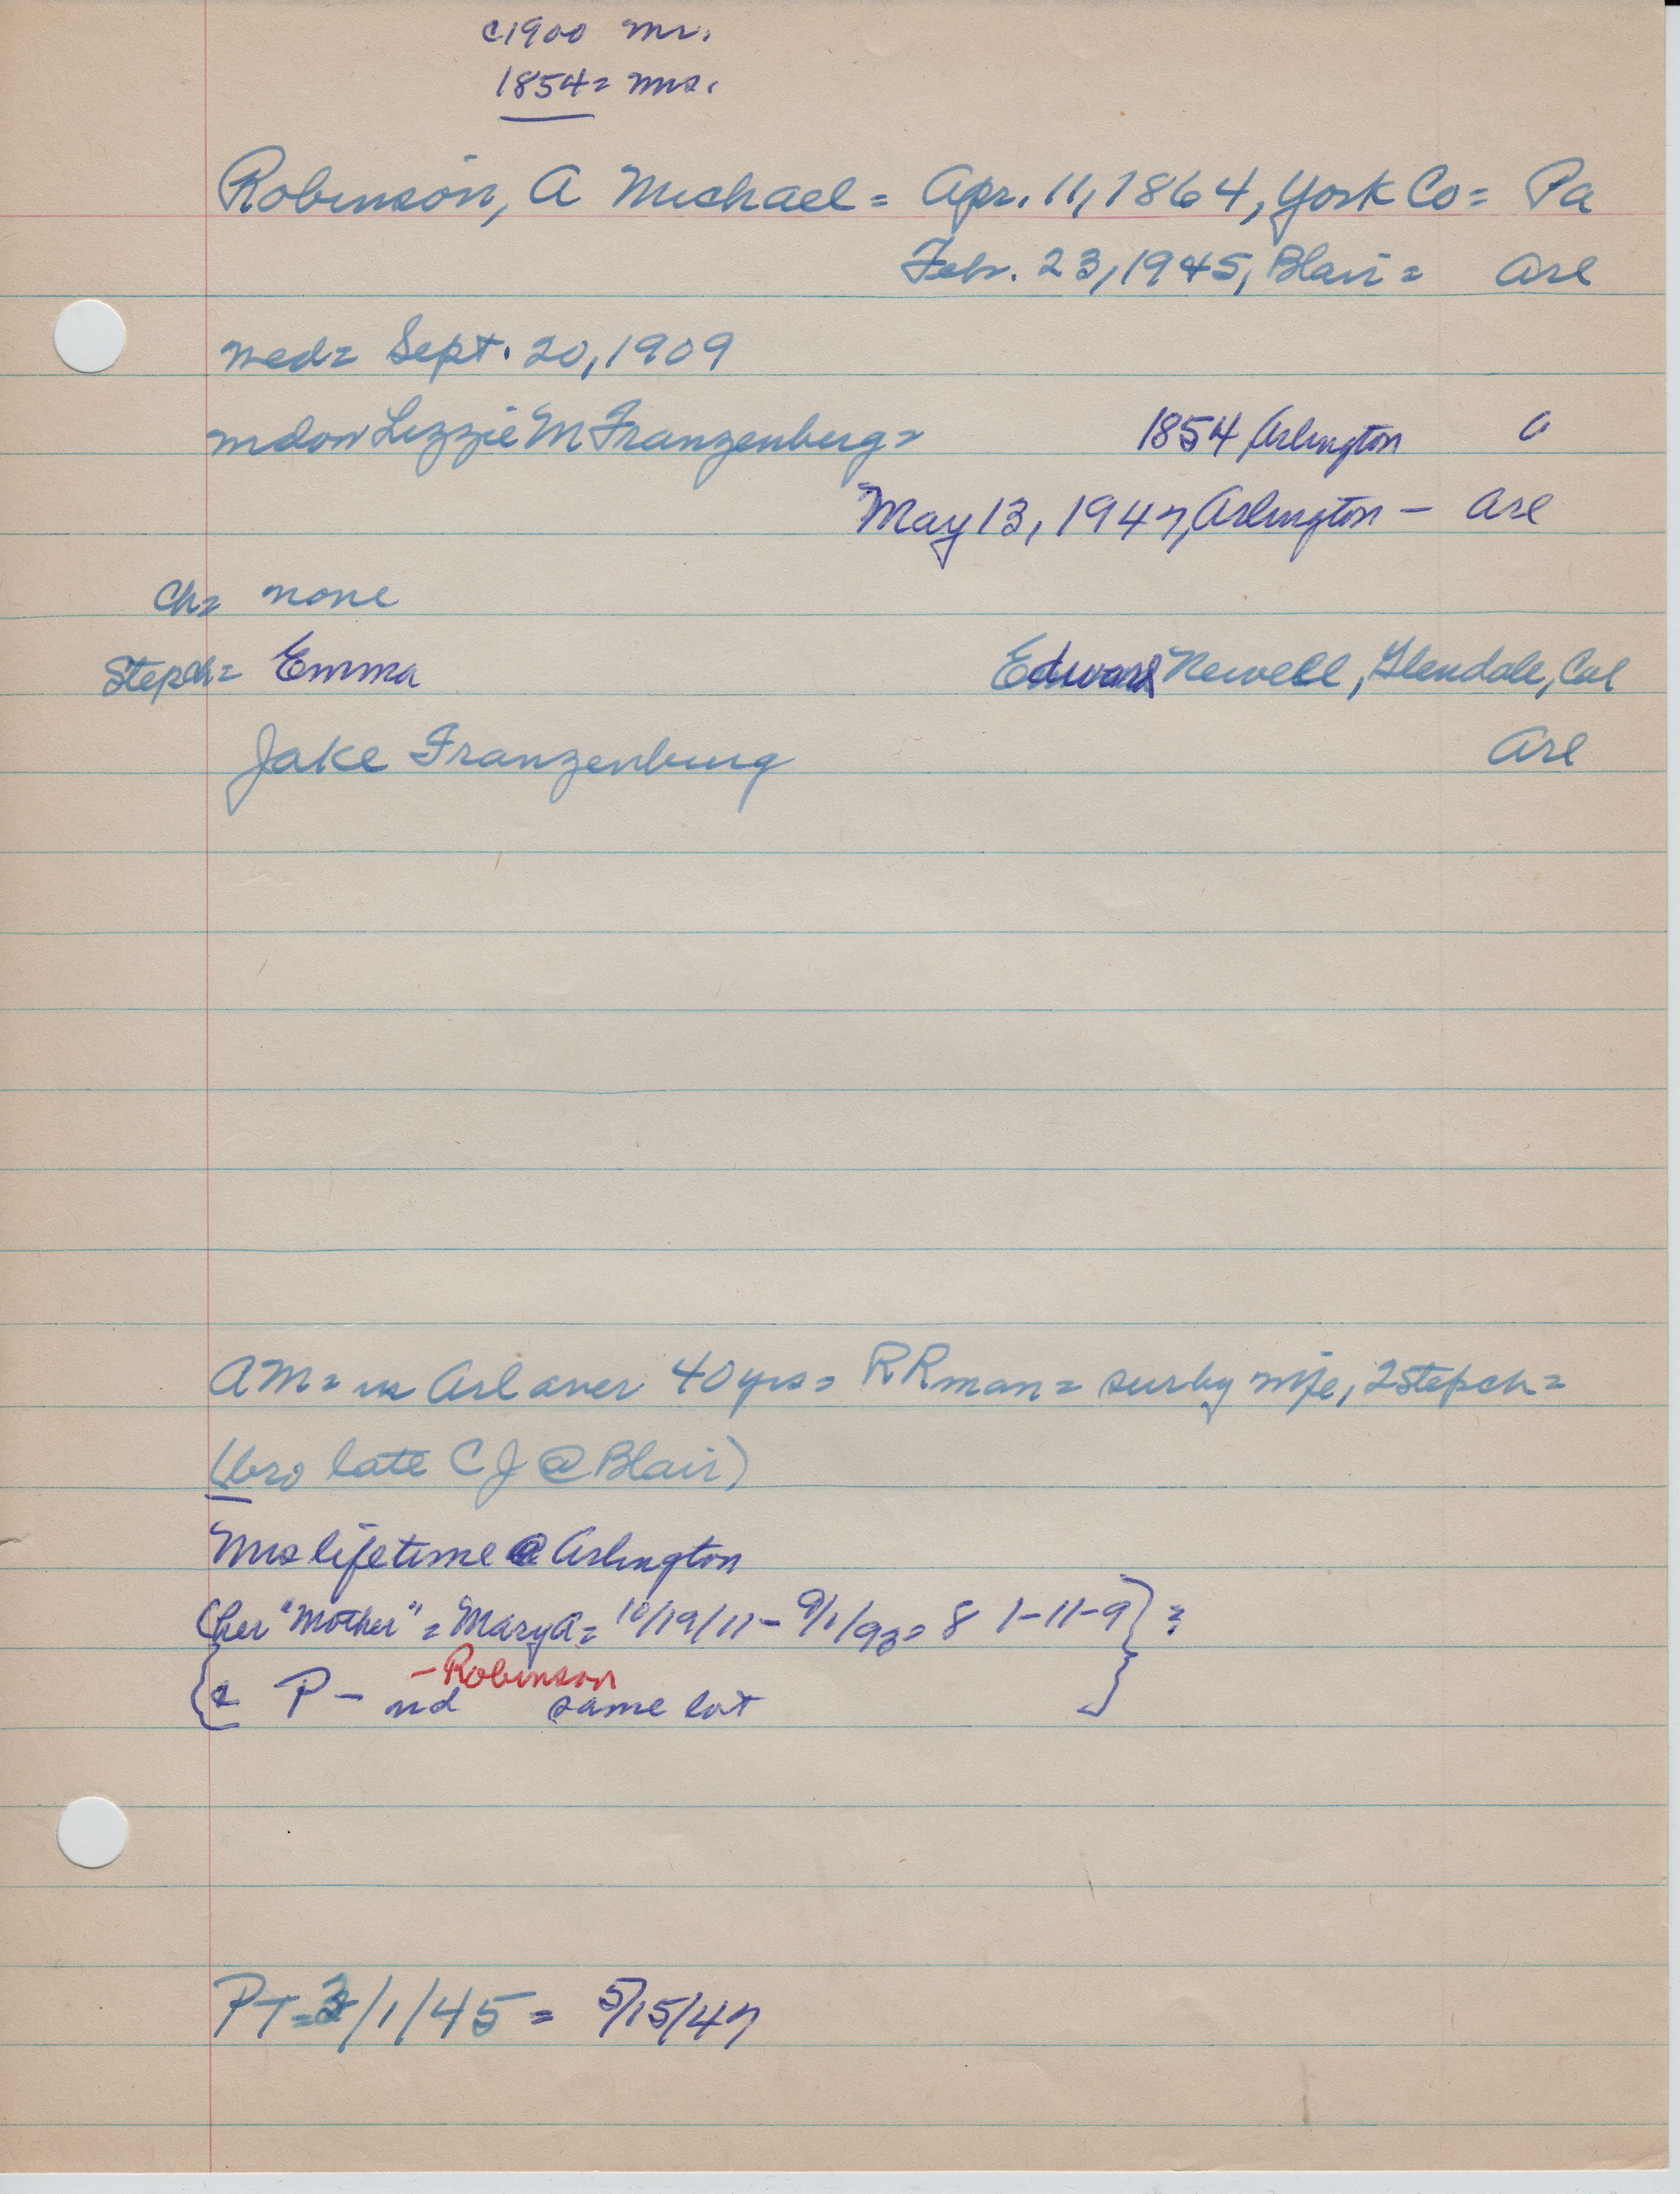 c1900 Mr.
1854= Mrs.
Robinson, A Michael = Apr. 11, 1864, York Co = Pa
Feb. 23, 1945, Blair = Arl
wed= Sept. 20, 1909
wdow Lizzie M Franzenburg=
1854 Arlington O
May 13, 1947, Arlington - Arl
Ch= none
Stepch= Emma Edward Newell, Glendale, Cal
Jake Franzenburg Arl
AM= in Arl over 40 yrs= RRman= sur by wife, 2 stepch=
(bro late CJ @ Blair)
Mrs lifetime @ Arlington
(her "Mother" = Mary A= 10/19/11 - 9/1/93= 81-11-9} =
{& P - nd same lot }
- Robinson
PT= 3/1/45 = 5/15/47